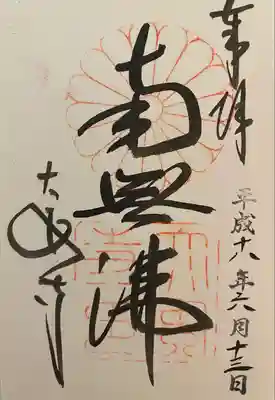 奉拝
平成十八年六月十三日
南無佛